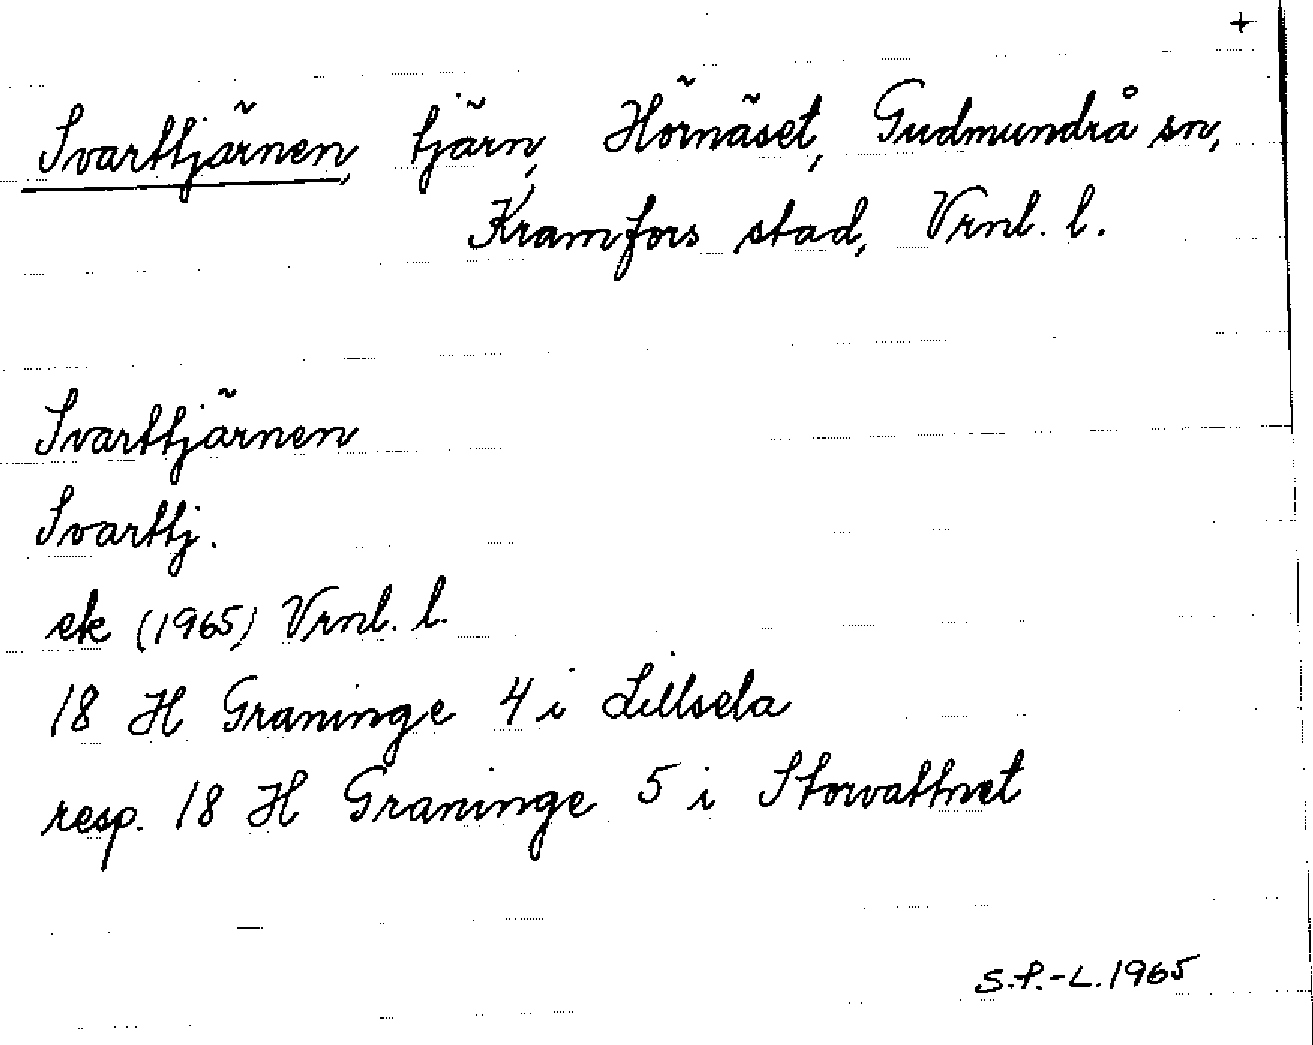 +
Svarttjärnen, tjärn, Hörnäset, Gudmundrå sn,
Kramfors stad, Vrnl. l.
Svarttjärnen
Svarttj.
ek (1965) Vrnl. l.
18 H Graninge 4 i Lillsela
resp. 18 H Graninge 5 i Storvattnet
S.P.-L. 1965